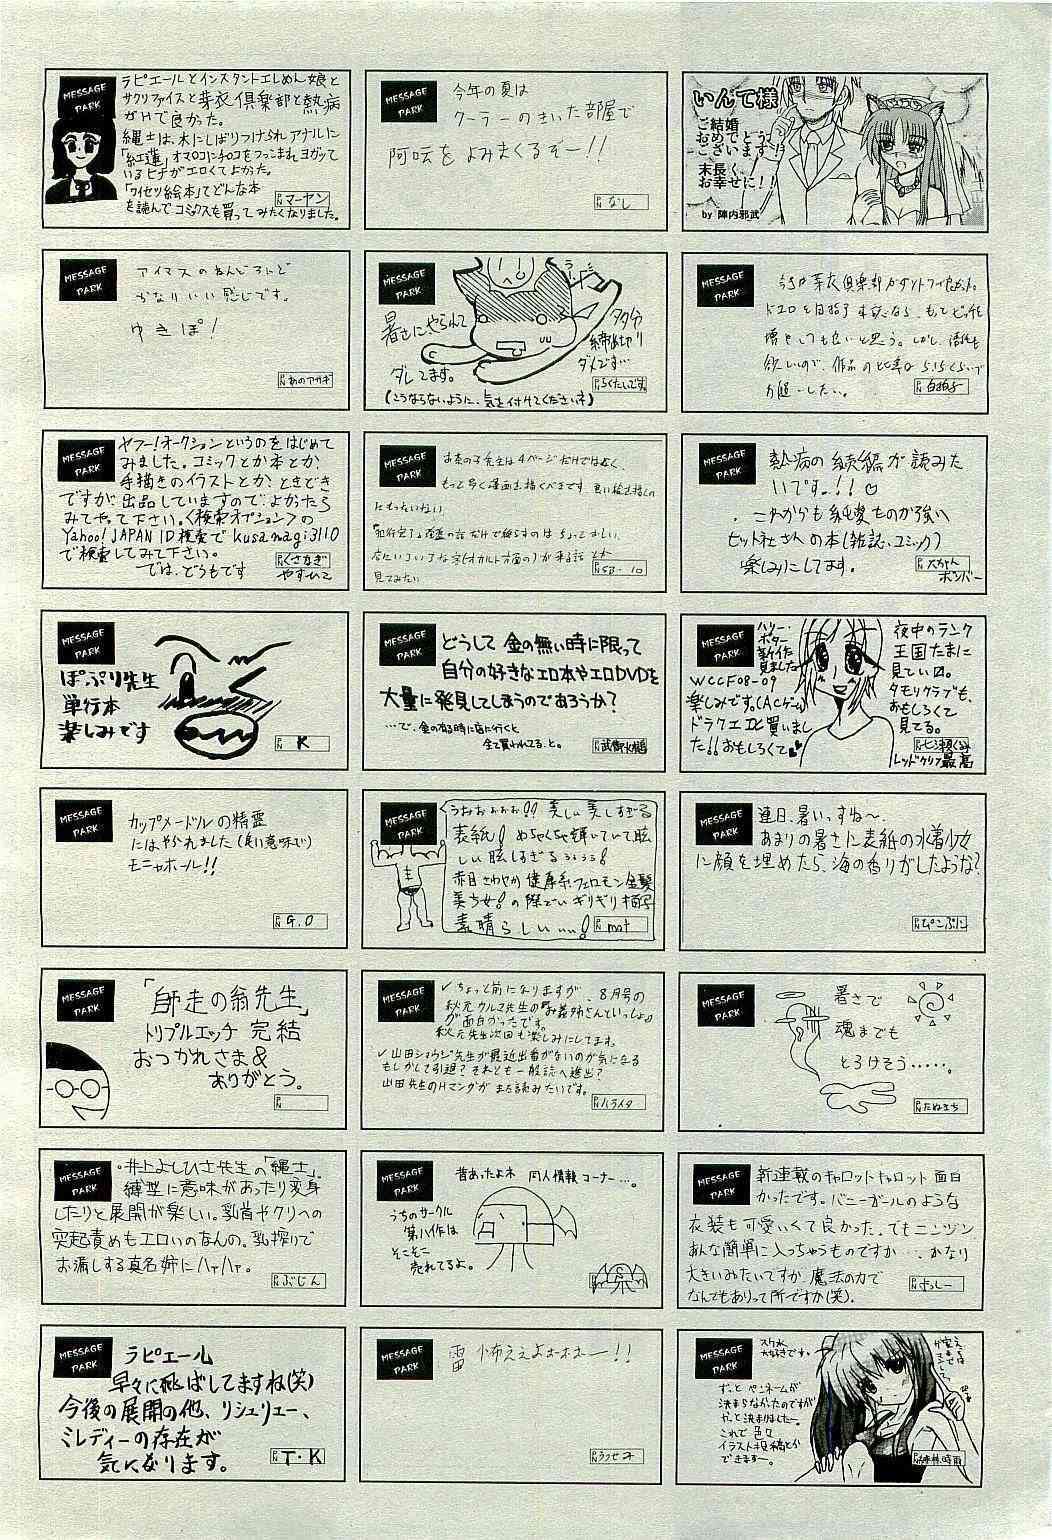 MESSAGE PARK
ラピエールとインスタントエレめん娘と
サクリファイスと芽衣倶楽部と熱病
がHで良かった。
縄士は、木にしばりつけられアナルに
「紅蓮」オマ○コにチ○コをつっこまれヨガッて
いるヒナがエロくてよかった。
「ワイセツ絵本」てどんな本
を読んでコミックスを買ってみたくなりました。
PN マーヤン
MESSAGE PARK
今年の夏は
クーラーのきいた部屋で
阿吽をよみまくるぞー!!
PN なし
いんて様
ご結婚
おめでとう
ございます!
末長く
お幸せに!!
by 陣内邪武
MESSAGE PARK
アイマスのねんどろいど
かなりいい感じです。
ゆきぽ!
PN あのアサギ
MESSAGE PARK
暑さにやられて
ダレてます。
締め切り
ダメです…
(こうならないように、気を付けてください)
PN らくたいです
MESSAGE PARK
芽衣倶楽部が
を目指す
増やしても良いと思う。しかし、
欲しいので、作品の比率は5:5くらいで
お願いしたい。
PN 白拍子
MESSAGE PARK
ヤフー!オークションというのをはじめて
みました。コミックとか本とか、
手描きのイラストとか、ときどき
ですが、出品していますので、よかったら
みてやって下さい。〈検索オプション〉の
Yahoo! JAPAN ID検索でkusanagi3110
で検索してみて下さい。
では、どうもです
PN くさなぎやすひて
MESSAGE PARK
お茶の子先生は4ページだけではなく、
もっと多く漫画を描くべきです。
もったいない。
見てみたい
PN SB-10
MESSAGE PARK
熱病の続編が読みた
いです。!!♡
これからも純愛ものが強い
ヒット社さんの本(雑誌、コミック)
楽しみにしてます。
PN 大ちゃんボンバー
MESSAGE PARK
ぽぷり先生
単行本
楽しみです
PN K
MESSAGE PARK
どうして金の無い時に限って
自分の好きなエロ本やエロDVDを
大量に発見してしまうのであろうか?
…で、金の有る時に店に行くと
全て買われてること。
PN
MESSAGE PARK
ハリー・
ポッター
新作
見ました
WCCF08-09
楽しみです。(ACゲーム)
ドラクエIXと買いまし
た!!おもしろくて
夜中のランク
王国たまに
見ています。
タモリクラブも、
おもしろくて
見てる。
PN 七瀬くみ
レッドクリフ最高
MESSAGE PARK
カップメードルの精霊
にはやられました(良い意味で)
モニャポール!!
PN G.O
MESSAGE PARK
うおおぉぉぉ!!美しい美しすぎる
表紙!めちゃくちゃ輝いていて眩
しい眩しすぎるぅぅぅぅ!
赤目さわやか健康系フェロモン金髪
美少女!の際どいギリギリ格好
素晴らしいぃぃ!
PN mat
MESSAGE PARK
連日、暑いっすね〜、
あまりの暑さに表紙の水着少女
に顔を埋めたら、海の香りがしたような?
PN ムーンぷりん
MESSAGE PARK
「師走の翁先生」
トリプルエッチ 完結
おつかれさま&
ありがとう。
PN
MESSAGE PARK
✓ちょっと前になりますが、8月号の
秋元カルマ先生の『み姦姉さんといっしょ』
が面白かったです。
秋元先生次回も楽しみにしてます。
✓山田ショウジ先生が最近出番がないのが気になる
もしかして引退?それとも一般誌へ進出?
山田先生のHマンガがまた読みたいです。
PN ハライタ
MESSAGE PARK
暑さで
魂までも
とろけそう・・・・・。
PN たぬきち
MESSAGE PARK
・井上よしひさ先生の「縄士」。
縛型に意味があったり変身
したりと展開が楽しい。乳首やクリへの
突起責めもエロいのなんの。乳搾りで
お漏しする真名姉にハァハァ。
PN ぶじん
MESSAGE PARK
昔あったよネ 同人情報コーナー…。
うちのサークル
第八作は
そこそこ
売れてるよ。
PN
MESSAGE PARK
新連載のキャロットキャロット面白
かったです。バニーガールのような
衣装も可愛いくて良かった。でもニンジン
あんな簡単に入っちゃうものですか…、かなり
大きいみたいですが、魔法の力で
なんでもありって所ですか(笑)。
PN ホっしー
MESSAGE PARK
ラピエール
早々に飛ばしてますね(笑)
今後の展開の他、リシュリュー、
ミレディーの存在が
気になります。
PN T・K
MESSAGE PARK
雷怖ええよォホホー!!
PN うつせみ
MESSAGE PARK
スク水
大好きです。
ずっとペンネームが
決まらなかったのですが
やっと決まりましたー。
これで色々
イラスト投稿とか
できますー。
PN